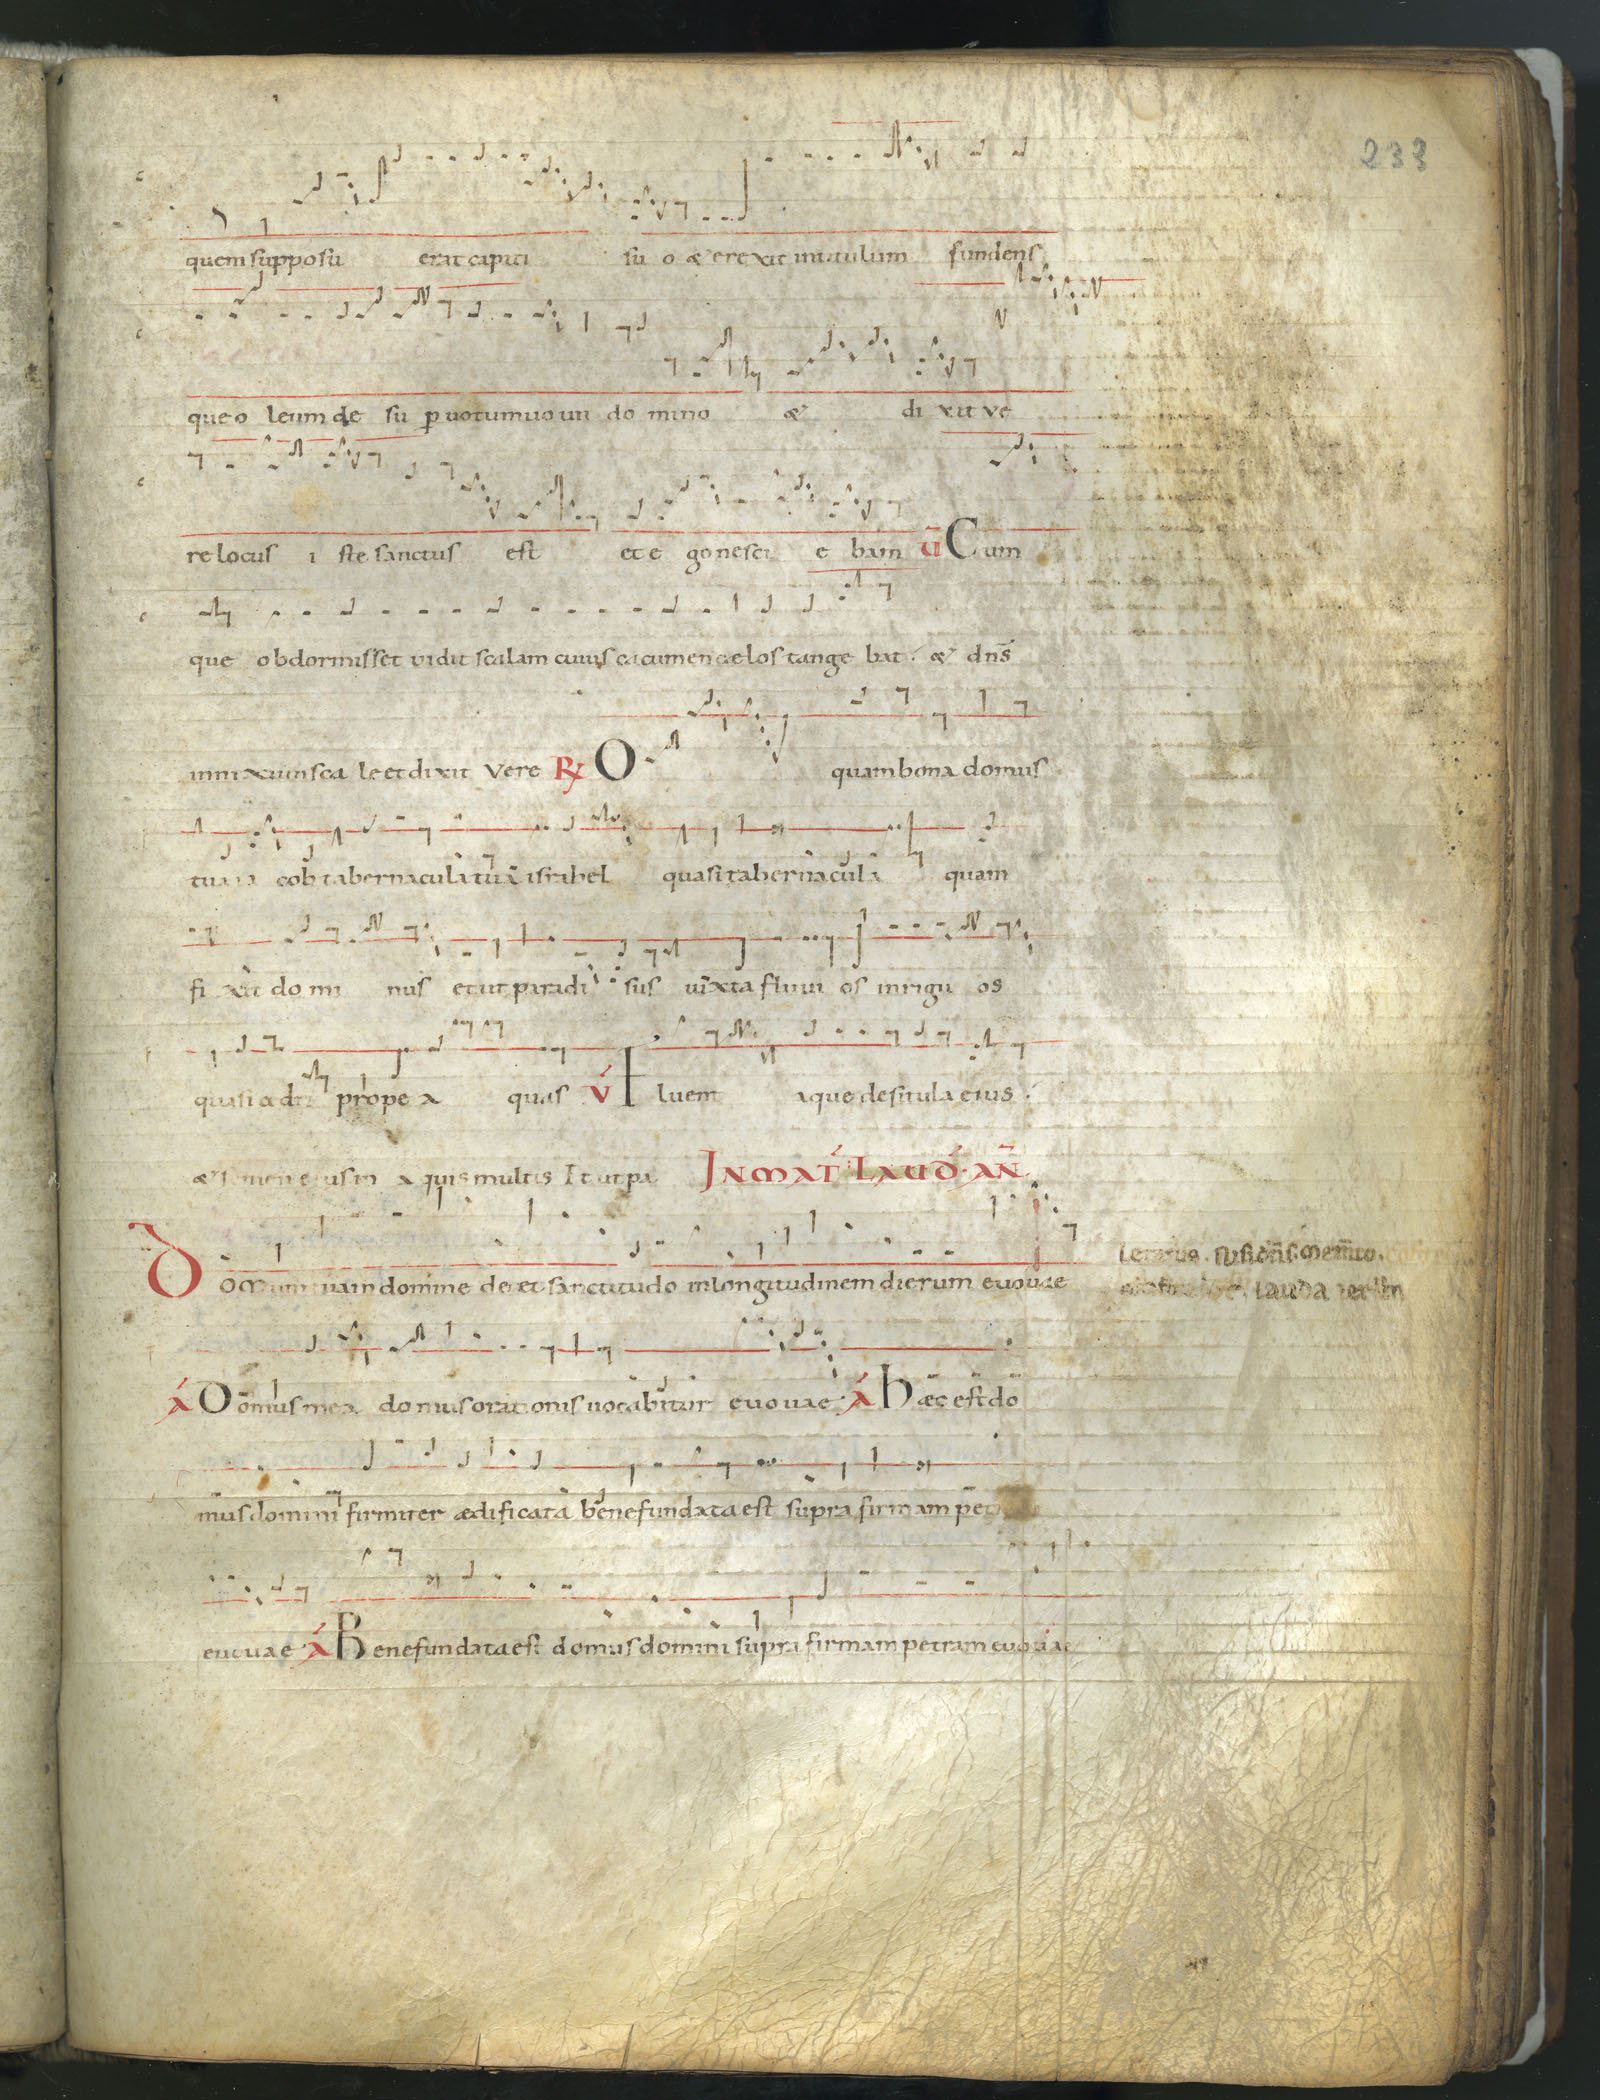 233
quem supposu erat capiti su o & erexit in titulum fundens
que oleum de su p uotum uouit do mino & di xit ve
re locus i ste sanctus est et e go nesci e bam V Cum
que obdormisset vidit scalam cuius cacumen caelos tange bat. & dns
innixum sca le et dixit Vere R O quam bona domus
tua ia cob tabernacula tua israhel quasi tabernacula quam
fi xit do mi nus et ut paradi sus iuxta fluui os inrigu os
quasi cedri prope a quas V Fluent aque de situla eius.
& semen eius in a quis multis It ut pa IN MAT LAUD. AN
Domum tuam domine decet sanctitudo in longitudinem dierum evovae
A Domus mea domus orationis vocabitur evovae A Haec est do
mus domini firmiter aedificata bene fundata est supra firmam pet
evovae A Bene fundata est domus domini supra firmam petram evovae
lauda